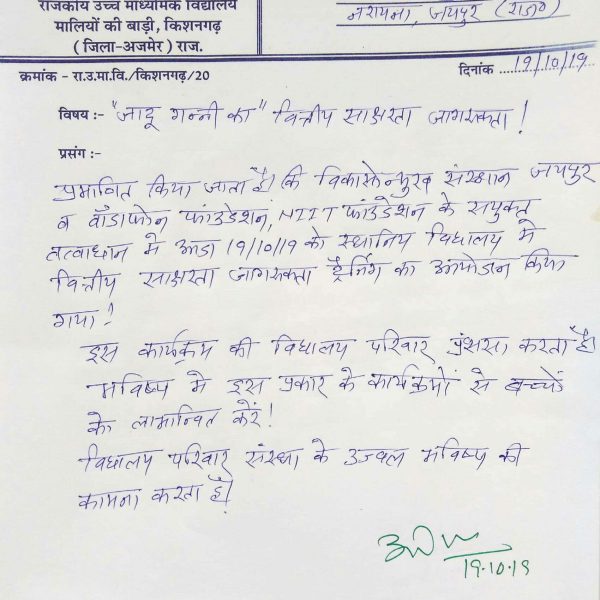 राजकीय उच्च माध्यमिक विद्यालय
मालियों की बाड़ी, किशनगढ़
( जिला-अजमेर ) राज.
नरायना, जयपुर (राज०)
क्रमांक - रा.उ.मा.वि./किशनगढ़/20
दिनांक 19/10/19
विषय :- "जादू गन्नी का" वित्तीय साक्षरता जागरुकता !
प्रसंग :-
प्रमाणित किया जाता है। कि विकासोन्मुख संस्थान जयपुर
व वोडाफोन फांउडेशन, NIIT फांउडेशन के सयुक्त
तत्वाधान मे आज 19/10/19 को स्थानिय विधालय मे
वित्तीय साक्षरता जागरुकता ट्रेनिंग का आयोजन किया
गया !
इस कार्यक्रम की विधालय परिवार प्रंशसा करता है।
भविष्य मे इस प्रकार के कार्यक्रमों से बच्चों
को लाभान्वित करें !
विधालय परिवार संस्था के उज्वल भविष्य की
कामना करता है।
19.10.19